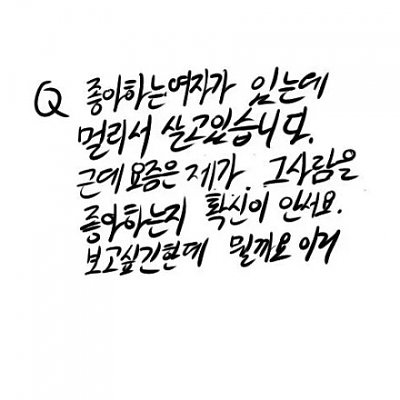 Q 좋아하는여자가 있는데
멀리서 살고있습니다.
근데 요즘은 제가. 그사람을
좋아하는지 확신이 안서요.
보고싶긴한데 뭘까요 이거